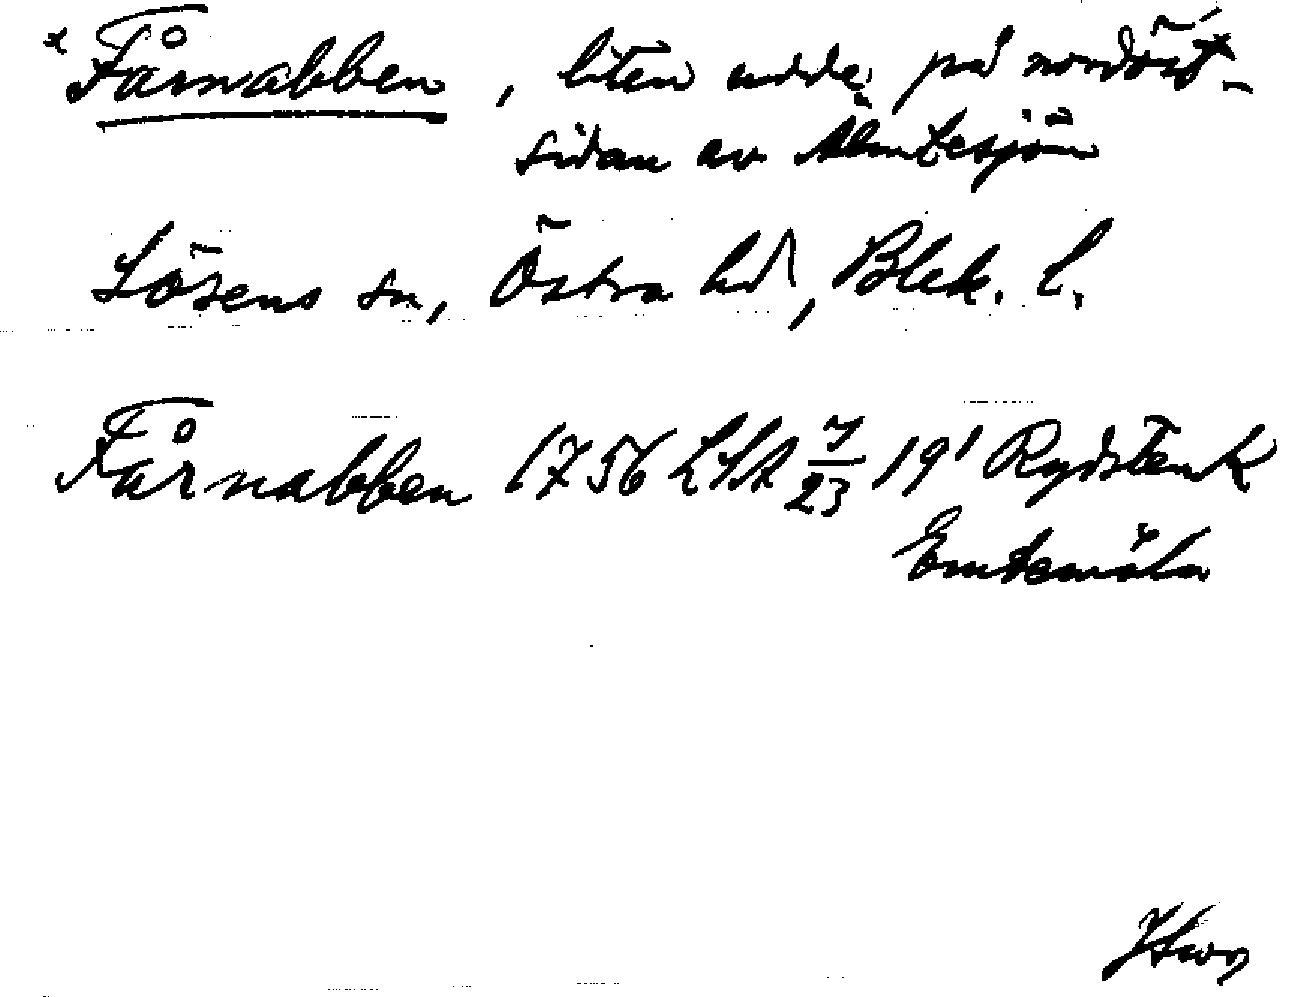 x Fårnabben, liten udde på nordöst-
sidan av Älmtesjön
Lösens sn, Östra hd, Blek. l.
Fårnabben 1756 LSA 7/23 19' Rydsten k
Emtemåla